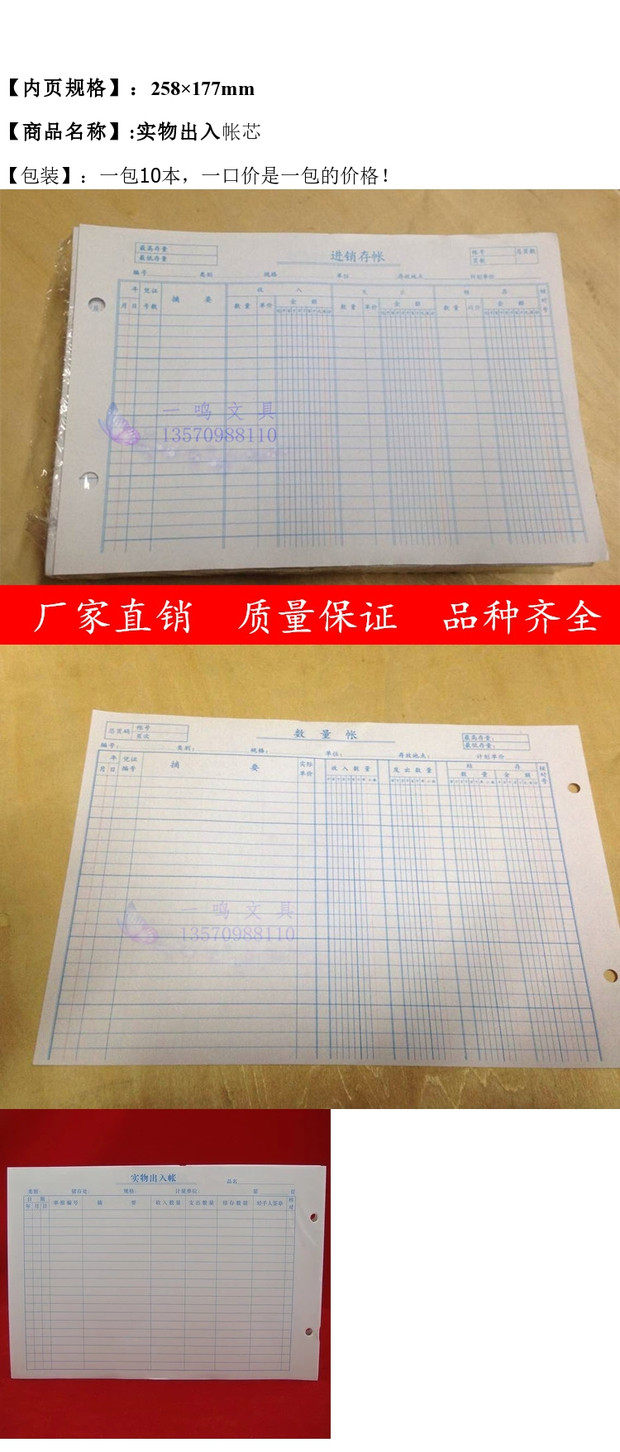 【内页规格】：258×177mm
【商品名称】:实物出入帐芯
【包装】：一包10本，一口价是一包的价格！
最高存量
最低存量
进销存帐
帐号
页数
总页数
编号
类别
规格
单位
存放地点
计划单价
年
月 日
凭证
号数
摘 要
收 入
数量 单价 金额
数量 单价 金额
数量 金额
核对号
一鸣文具
13570988110
厂家直销 质量保证 品种齐全
总页码
帐号
页次
数量帐
最高存量：
最低存量：
编号： 类别： 规格： 单位： 存放地点： 计划单价
年
月 日
凭证
编号
摘 要
实际
单价
收入数量
发出数量
结 存
数量 金额
核对号
一鸣文具
13570988110
实物出入帐
品名
类别： 储存处： 规格： 计量单位：
日期
年 月 日
单据编号
摘 要
收入数量
支出数量
结存数量
经手人签章
核对